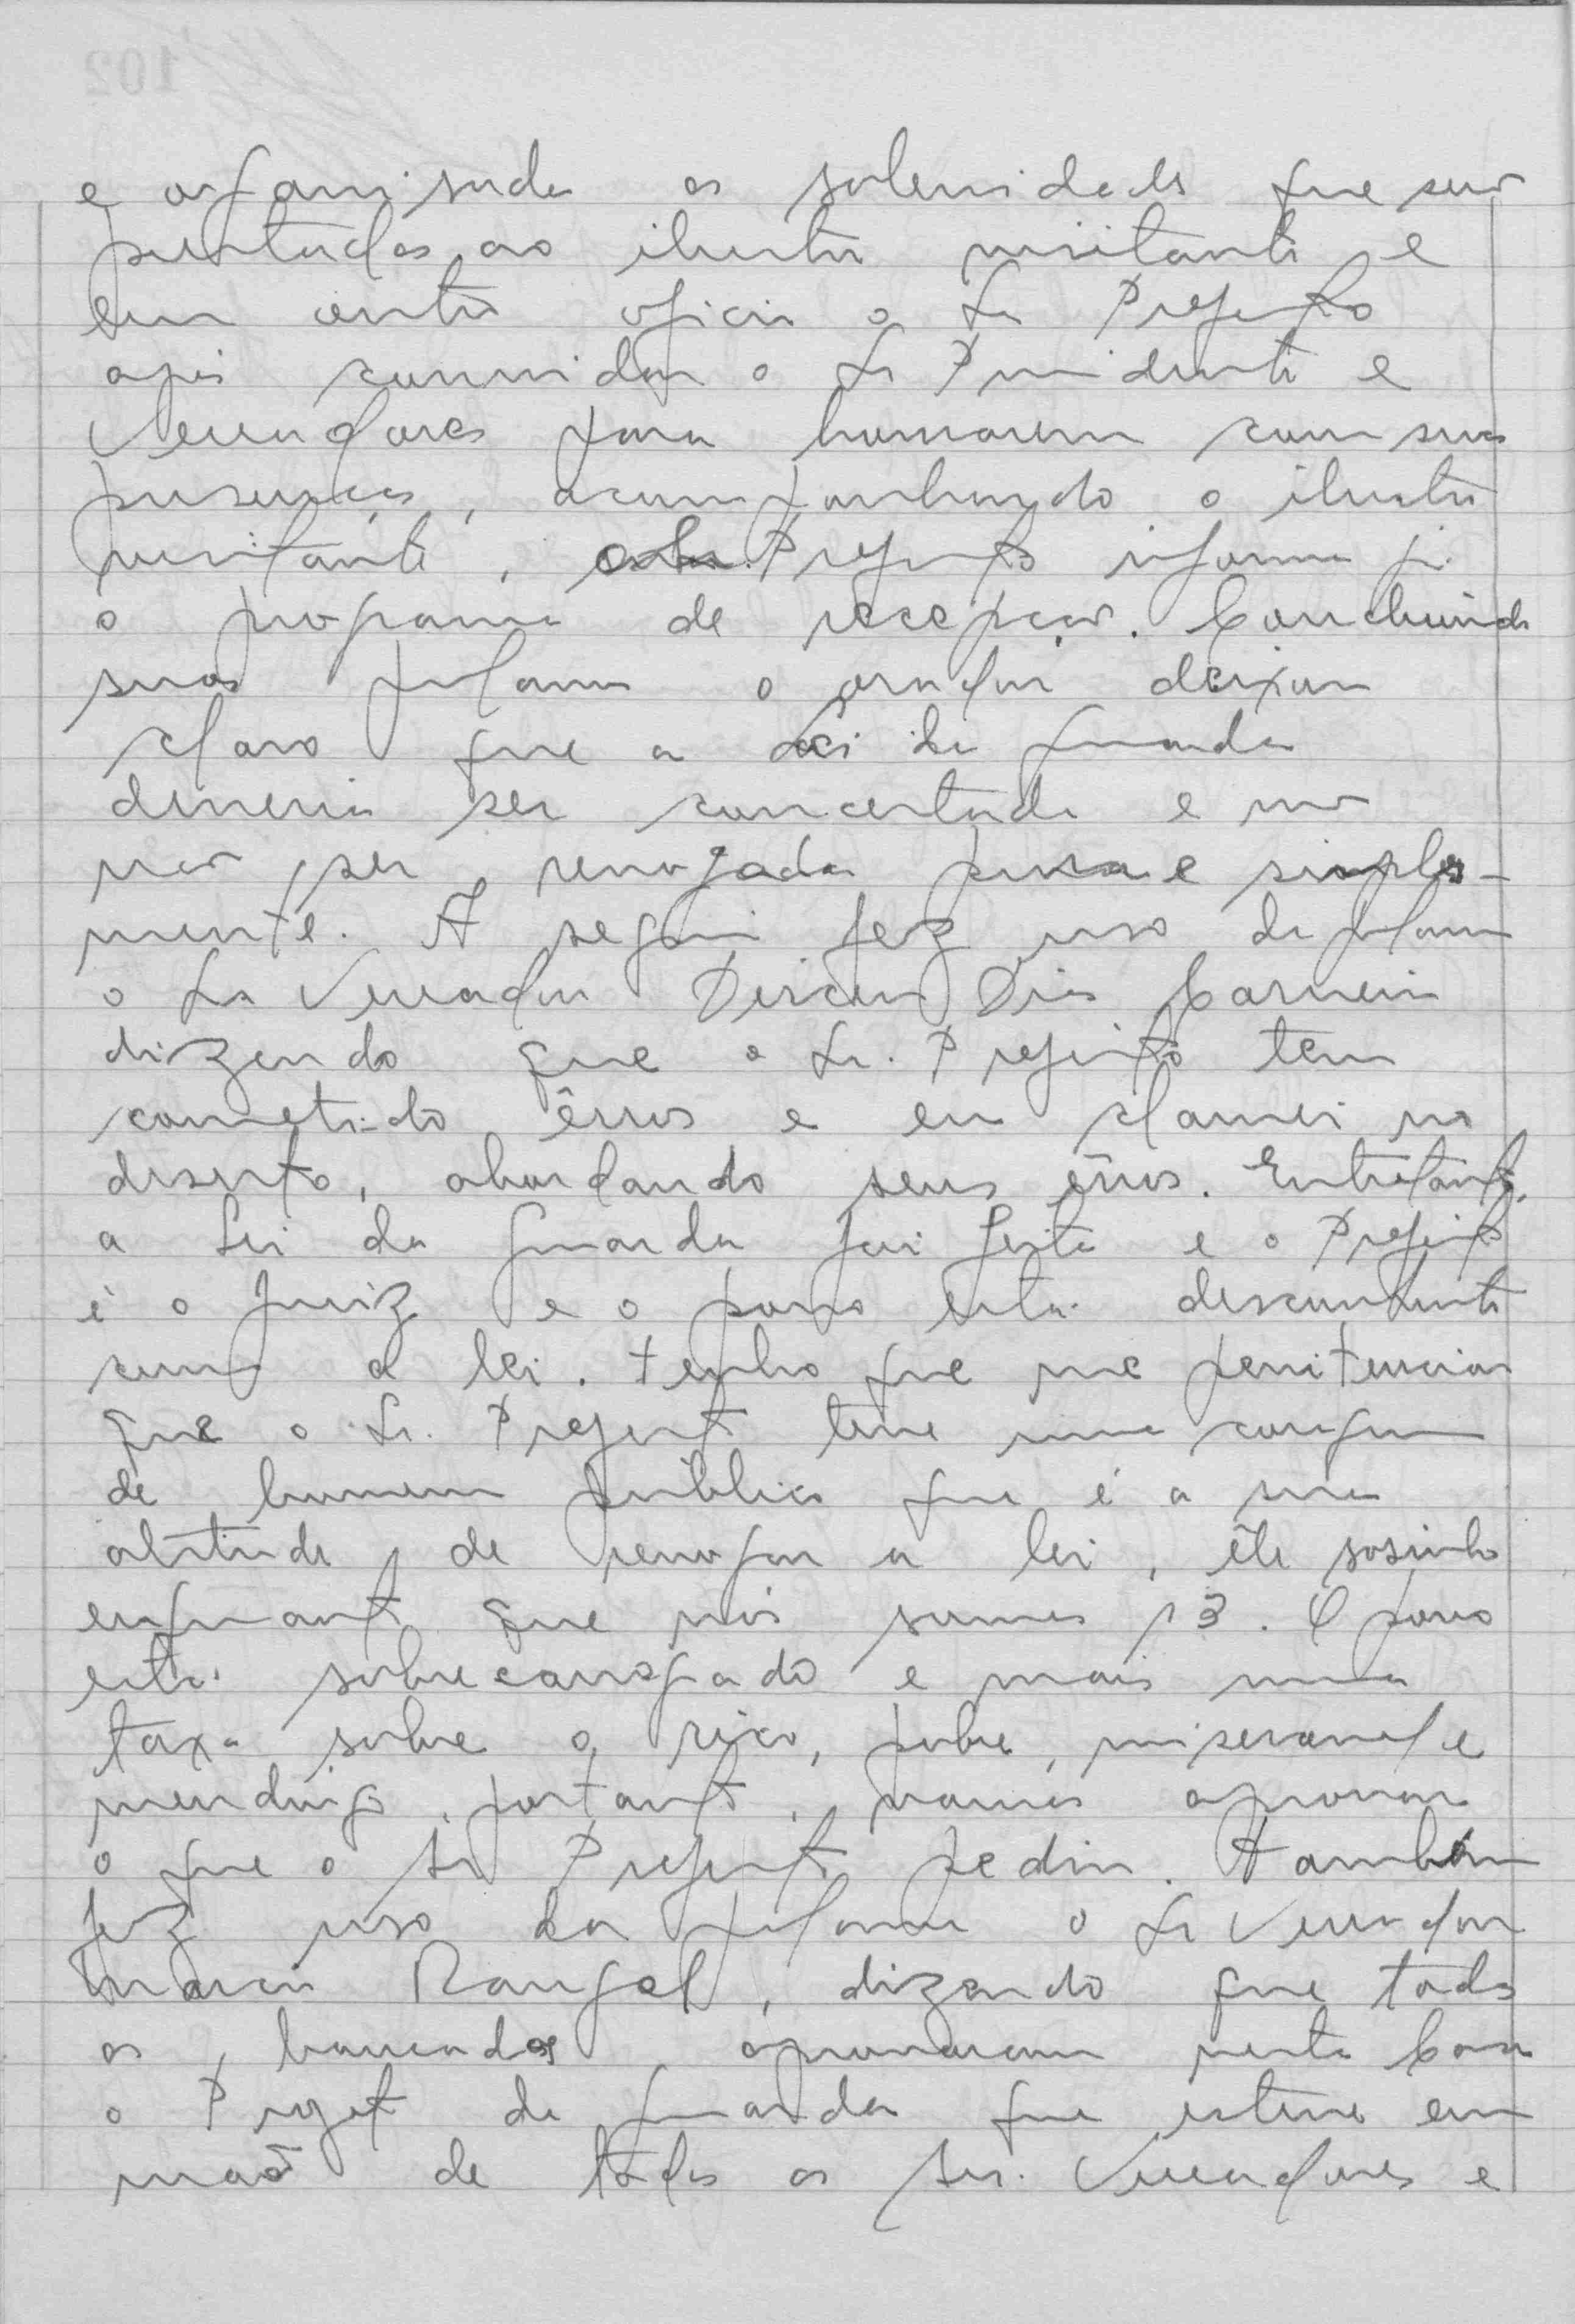 e organisada as solenidades que serão
prestadas ao ilustre visitante e
em outro oficio o Sr Prefeito
após convidar o Sr Presidente e
Vereadores para honrarem com suas
presenças, acompanhando o ilustre
visitante, o Prefeito informa já
o programa de recepção. Concluindo
suas palavras o orador deixou
claro que a Lei da guarda
deveria ser concertada e não
ser revogada pura e simples-
mente. A seguir fez uso da palavra
o Sr Vereador Dirceu Dias Carneiro
dizendo que o Sr. Prefeito tem
cometido êrros e eu clamei no
deserto, abordando seus êrros. Entretanto,
a Lei da guarda foi feita e o Prefeito
é o juiz e o povo está descontente
com a lei. Tenho que me penitenciar
que o Sr. Prefeito teve uma coragem
de homem público que é a sua
atitude de revogar a lei, êle sosinho
enquanto que nós somos 13. O povo
está sobrecarregado e mais uma
taxa sobre o rico, pobre, miseravel e
mendigo, portanto, vamos aprovar
o que o Sr Prefeito pediu. Também
fez uso da palavra o Sr Vereador
Marcio Rangel, dizendo que todas
as bancadas aprovaram nesta Casa
o Projeto da guarda que esteve em
mão de todos os Srs. Vereadores e